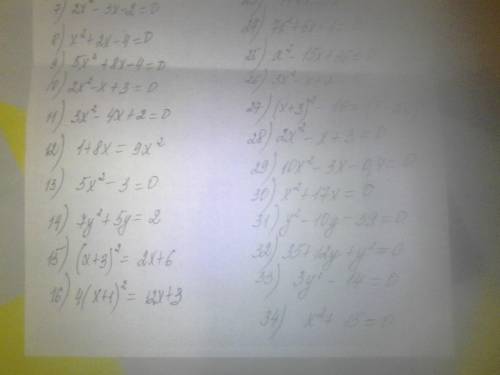 7) 2x² - 3x - 2 = 0
8) x² + 2x - 4 = 0
9) 5x² + 8x - 4 = 0
10) 2x² - x + 3 = 0
11) 3x² - 4x + 2 = 0
12) 1 + 8x = 9x²
13) 5x² - 3 = 0
14) 7y² + 5y = 2
15) (x+3)² = 2x + 6
16) 4(x+1)² = 12x + 3
24) 7x² + 6x
25) x² - 15x
26) 3x²
27) (x+3)²
28) 2x² - x + 3 = 0
29) 10x² - 3x - 0,4 = 0
30) x² + 17x = 0
31) y² - 10y - 39 = 0
32) 35 + 12y + y² = 0
33) 3y² - 14 = 0
34) x² + 15 = 0